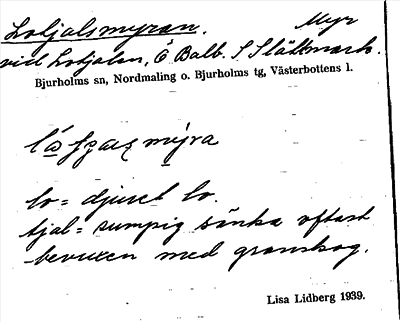 Lotjalsmyran. Myr
vid Lotjalen, Ö Balb. S Slättmark.
Bjurholms sn, Nordmaling o. Bjurholms tg, Västerbottens l.
mýra
lo = djuret lo.
tjal = sumpig sänka oftast
bevuxen med granskog.
Lisa Lidberg 1939.